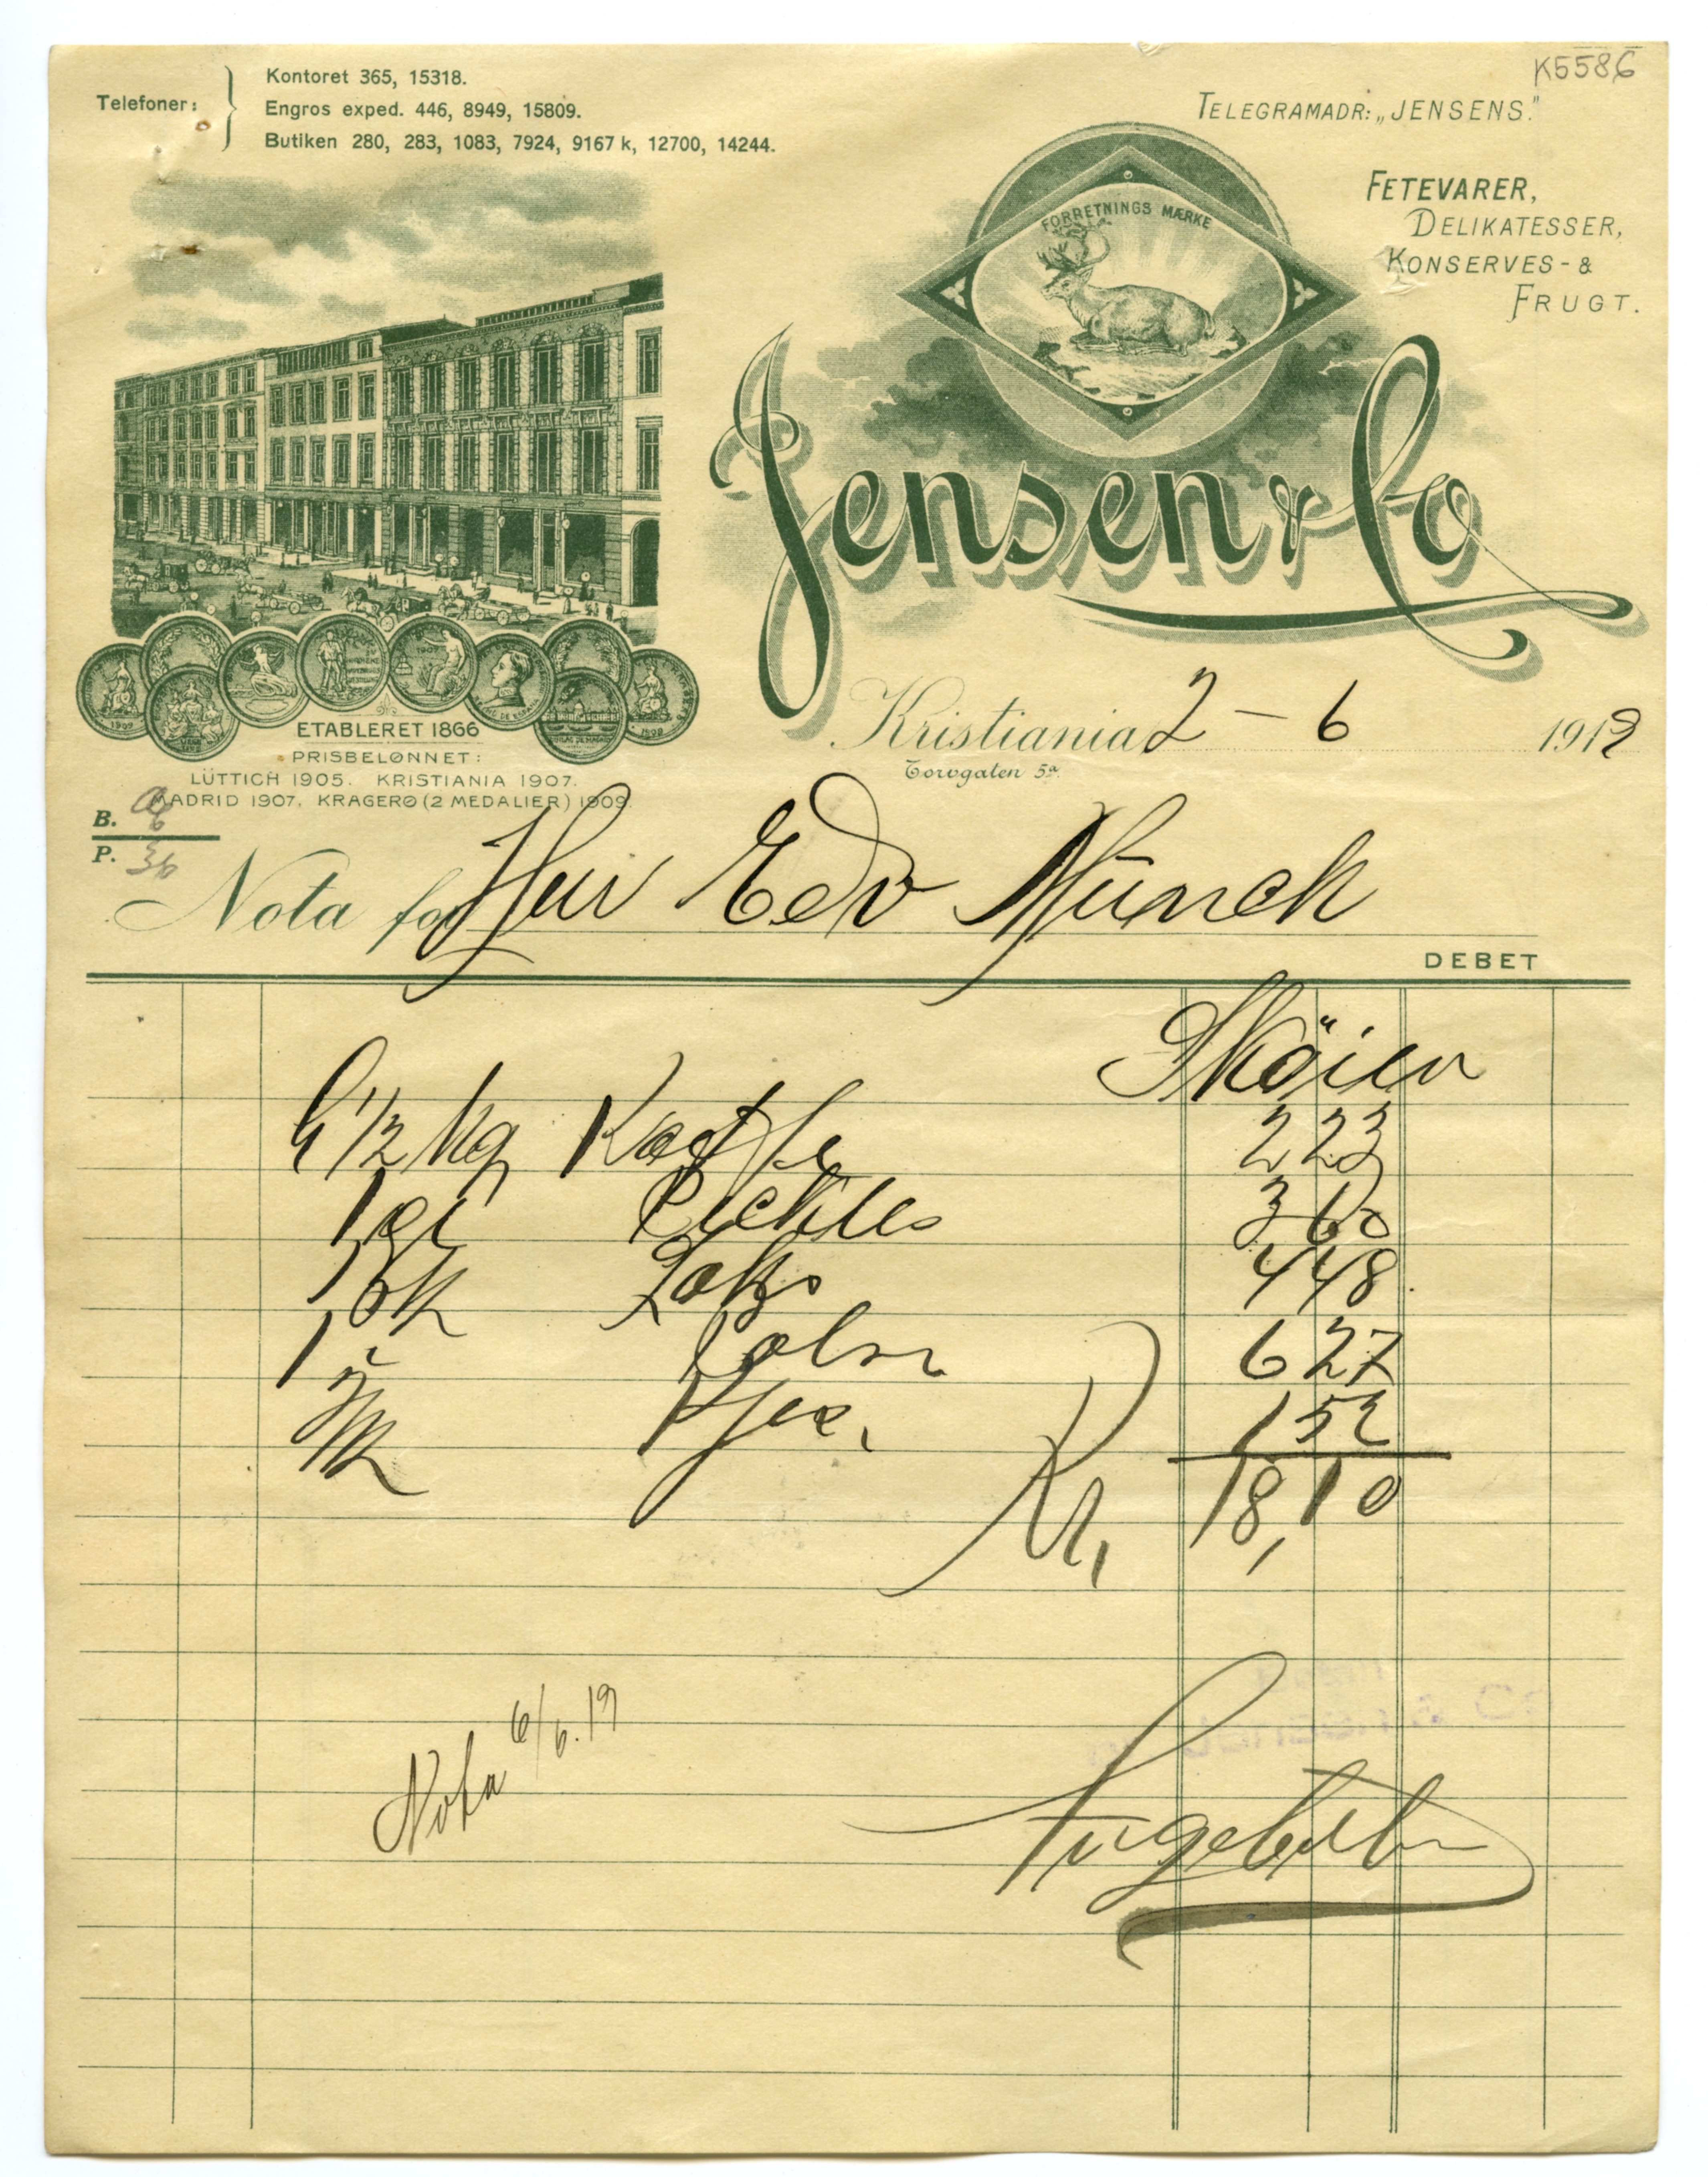 K5586
Telefoner:
Kontoret 365, 15318.
Engros exped. 446, 8949, 15809.
Butiken 280, 283, 1083, 7924, 9167 k, 12700, 14244.
TELEGRAMADR: „JENSENS."
FETEVARER,
DELIKATESSER,
KONSERVES- &
FRUGT.
FORRETNINGS MÆRKE
Jensen & Co
ETABLERET 1866
PRISBELØNNET:
LÜTTICH 1905. KRISTIANIA 1907.
MADRID 1907. KRAGERØ (2 MEDALIER) 1909.
Kristiania 2 – 6 1919
Torvgaten 5a.
B.
P. 36
Nota for Herr Edv Münch
DEBET
Sköien
1/2 kg Kaffe 2 23
1 gl Pickles 3 60
1 Laks 4 48
1 6 27
1 52
Kr, 18,10
Nota 6/6.19